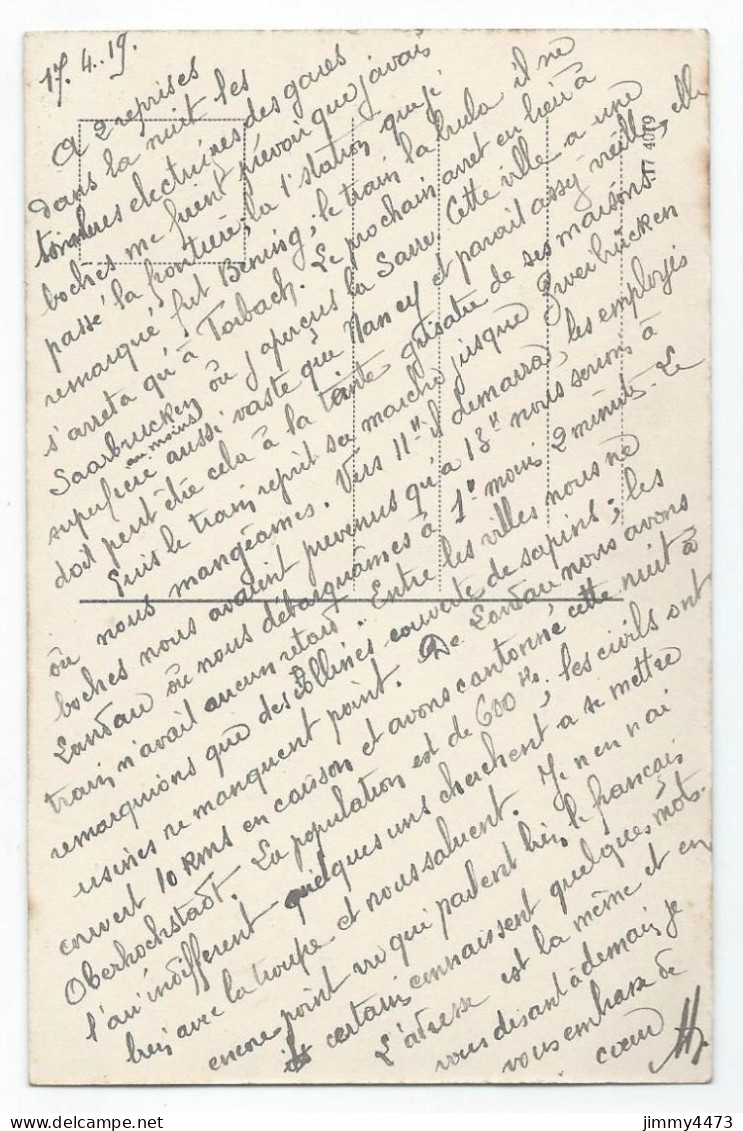 17.4.19.
A 2 reprises
dans la nuit les
lumières électriques des gares
boches me firent prévoir que j'avais
passé la frontière; la 1e station que je
remarqué fut Bening, le train la brula il ne
s'arreta qu'à Forbach. Le prochain arret eu lieu à
Saarbrucken où j'aperçus la Sarre. Cette ville a une
superficie (au moins) aussi vaste que Nancy et parait assez vieille, elle
doit peut être cela à la teinte grisatre de ses maisons.
Puis le train reprit sa marche jusque Zweibrücken
où nous mangeâmes. Vers 11H il démarra, les employés
boches nous avaient prévenus qu'à 13H nous serions à
Landau où nous débarquâmes à 1H moins 2 minutes. Le
train n'avait aucun retard. Entre les villes nous ne
remarquions que des collines couverte de sapins; les
usines ne manquent point. De Landau nous avons
couvert 10 Kms en causson et avons cantonné cette nuit à
Oberhochstadt. La population est de 600 Hts, les civils ont
l'air indifférent quelques uns cherchent à se mettre
bien avec la troupe et nous saluent. Je n'en n'ai
encore point vu qui parlent bien le français
certains connaissent quelques mots.
L'adresse est la même et en
vous disant à demain, je
vous embrasse de
coeur
17 4019
www.jimmy4473.com